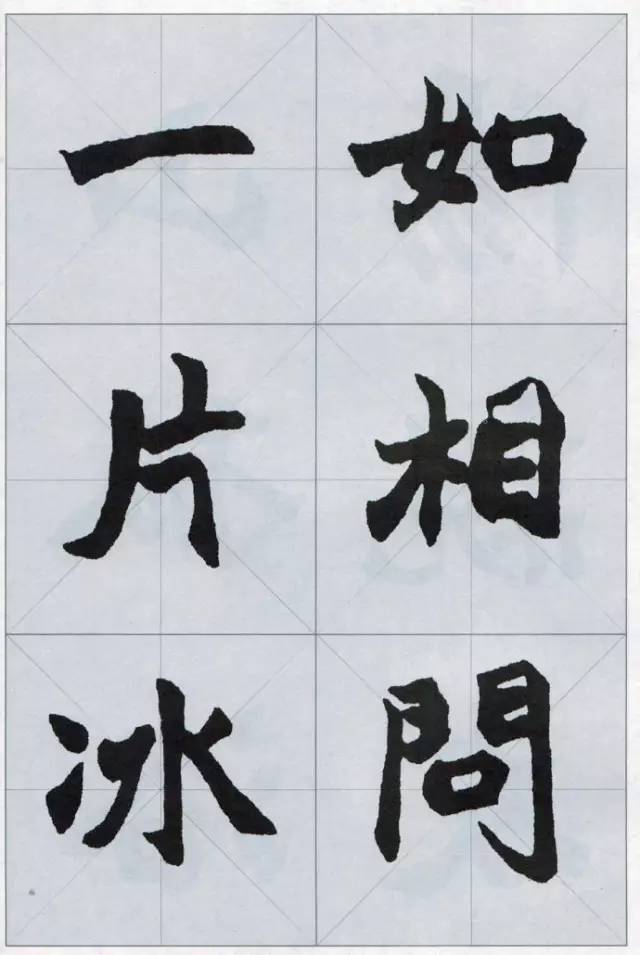 如相問
一片冰